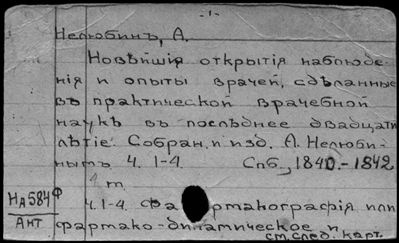 -1-
Нелюбинъ, А.
Новѣйшія открытія наблюде-
нія и опыты врачей, сдѣланные
въ практической врачебной
наукѣ въ послѣднее двадцати-
лѣтіе. Собран. и изд. А. Нелюби-
нымъ Ч. 1-4. Спб., 1840.-1842
4 т.
Ч. 1-4. Фармакографія или
фармако-динамическое и
см. след. карт.
НА584Ф
Ант